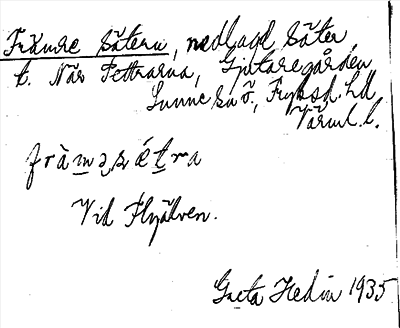 Främre Sätern, nedlagd säter
t. Näs Pettrarna, Gjutaregården,
Sunne sn ö., Fryksd. hd
Värml. l.
fràmǝsétra
Vid Flyälven.
Greta Hedin 1935